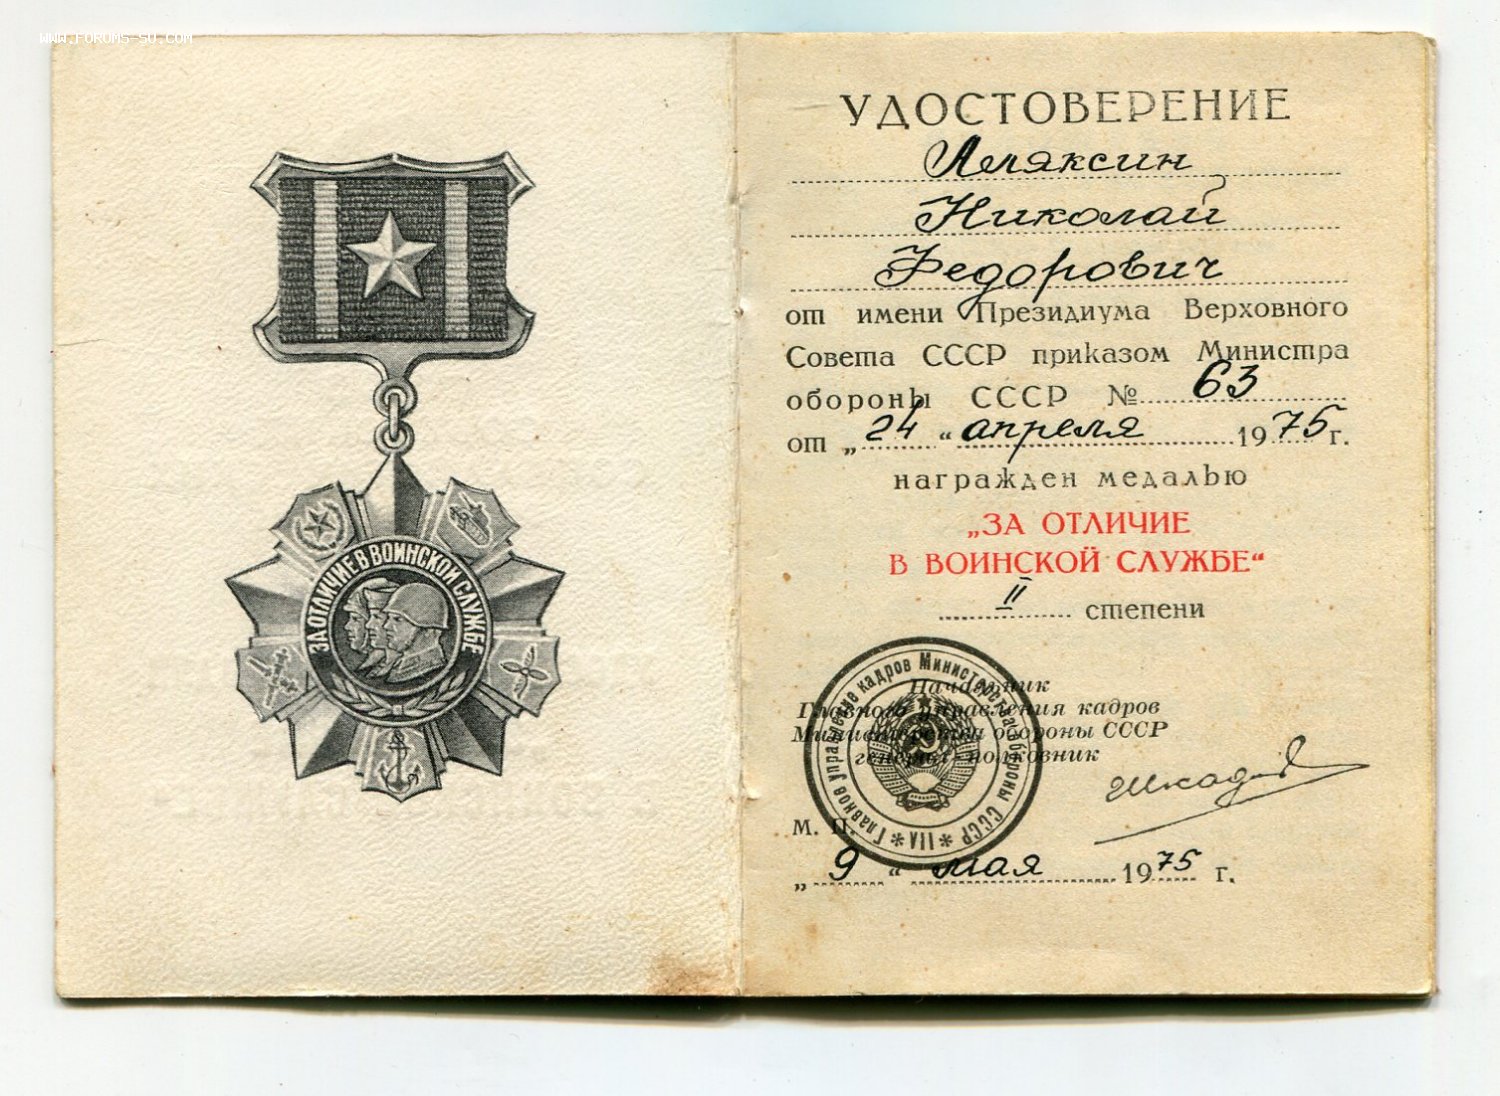 www.forums-su.com
ЗА ОТЛИЧИЕ В ВОИНСКОЙ СЛУЖБЕ
УДОСТОВЕРЕНИЕ
Николай
Федорович
от имени Президиума Верховного
Совета СССР приказом Министра
обороны СССР № 63
от „24“ апреля 1975 г.
награжден медалью
„ЗА ОТЛИЧИЕ
В ВОИНСКОЙ СЛУЖБЕ“
II степени
Начальник
Главного управления кадров
Министерства обороны СССР
генерал-полковник
Главное управление кадров Министерства обороны СССР
М. П.
„9“ мая 1975 г.